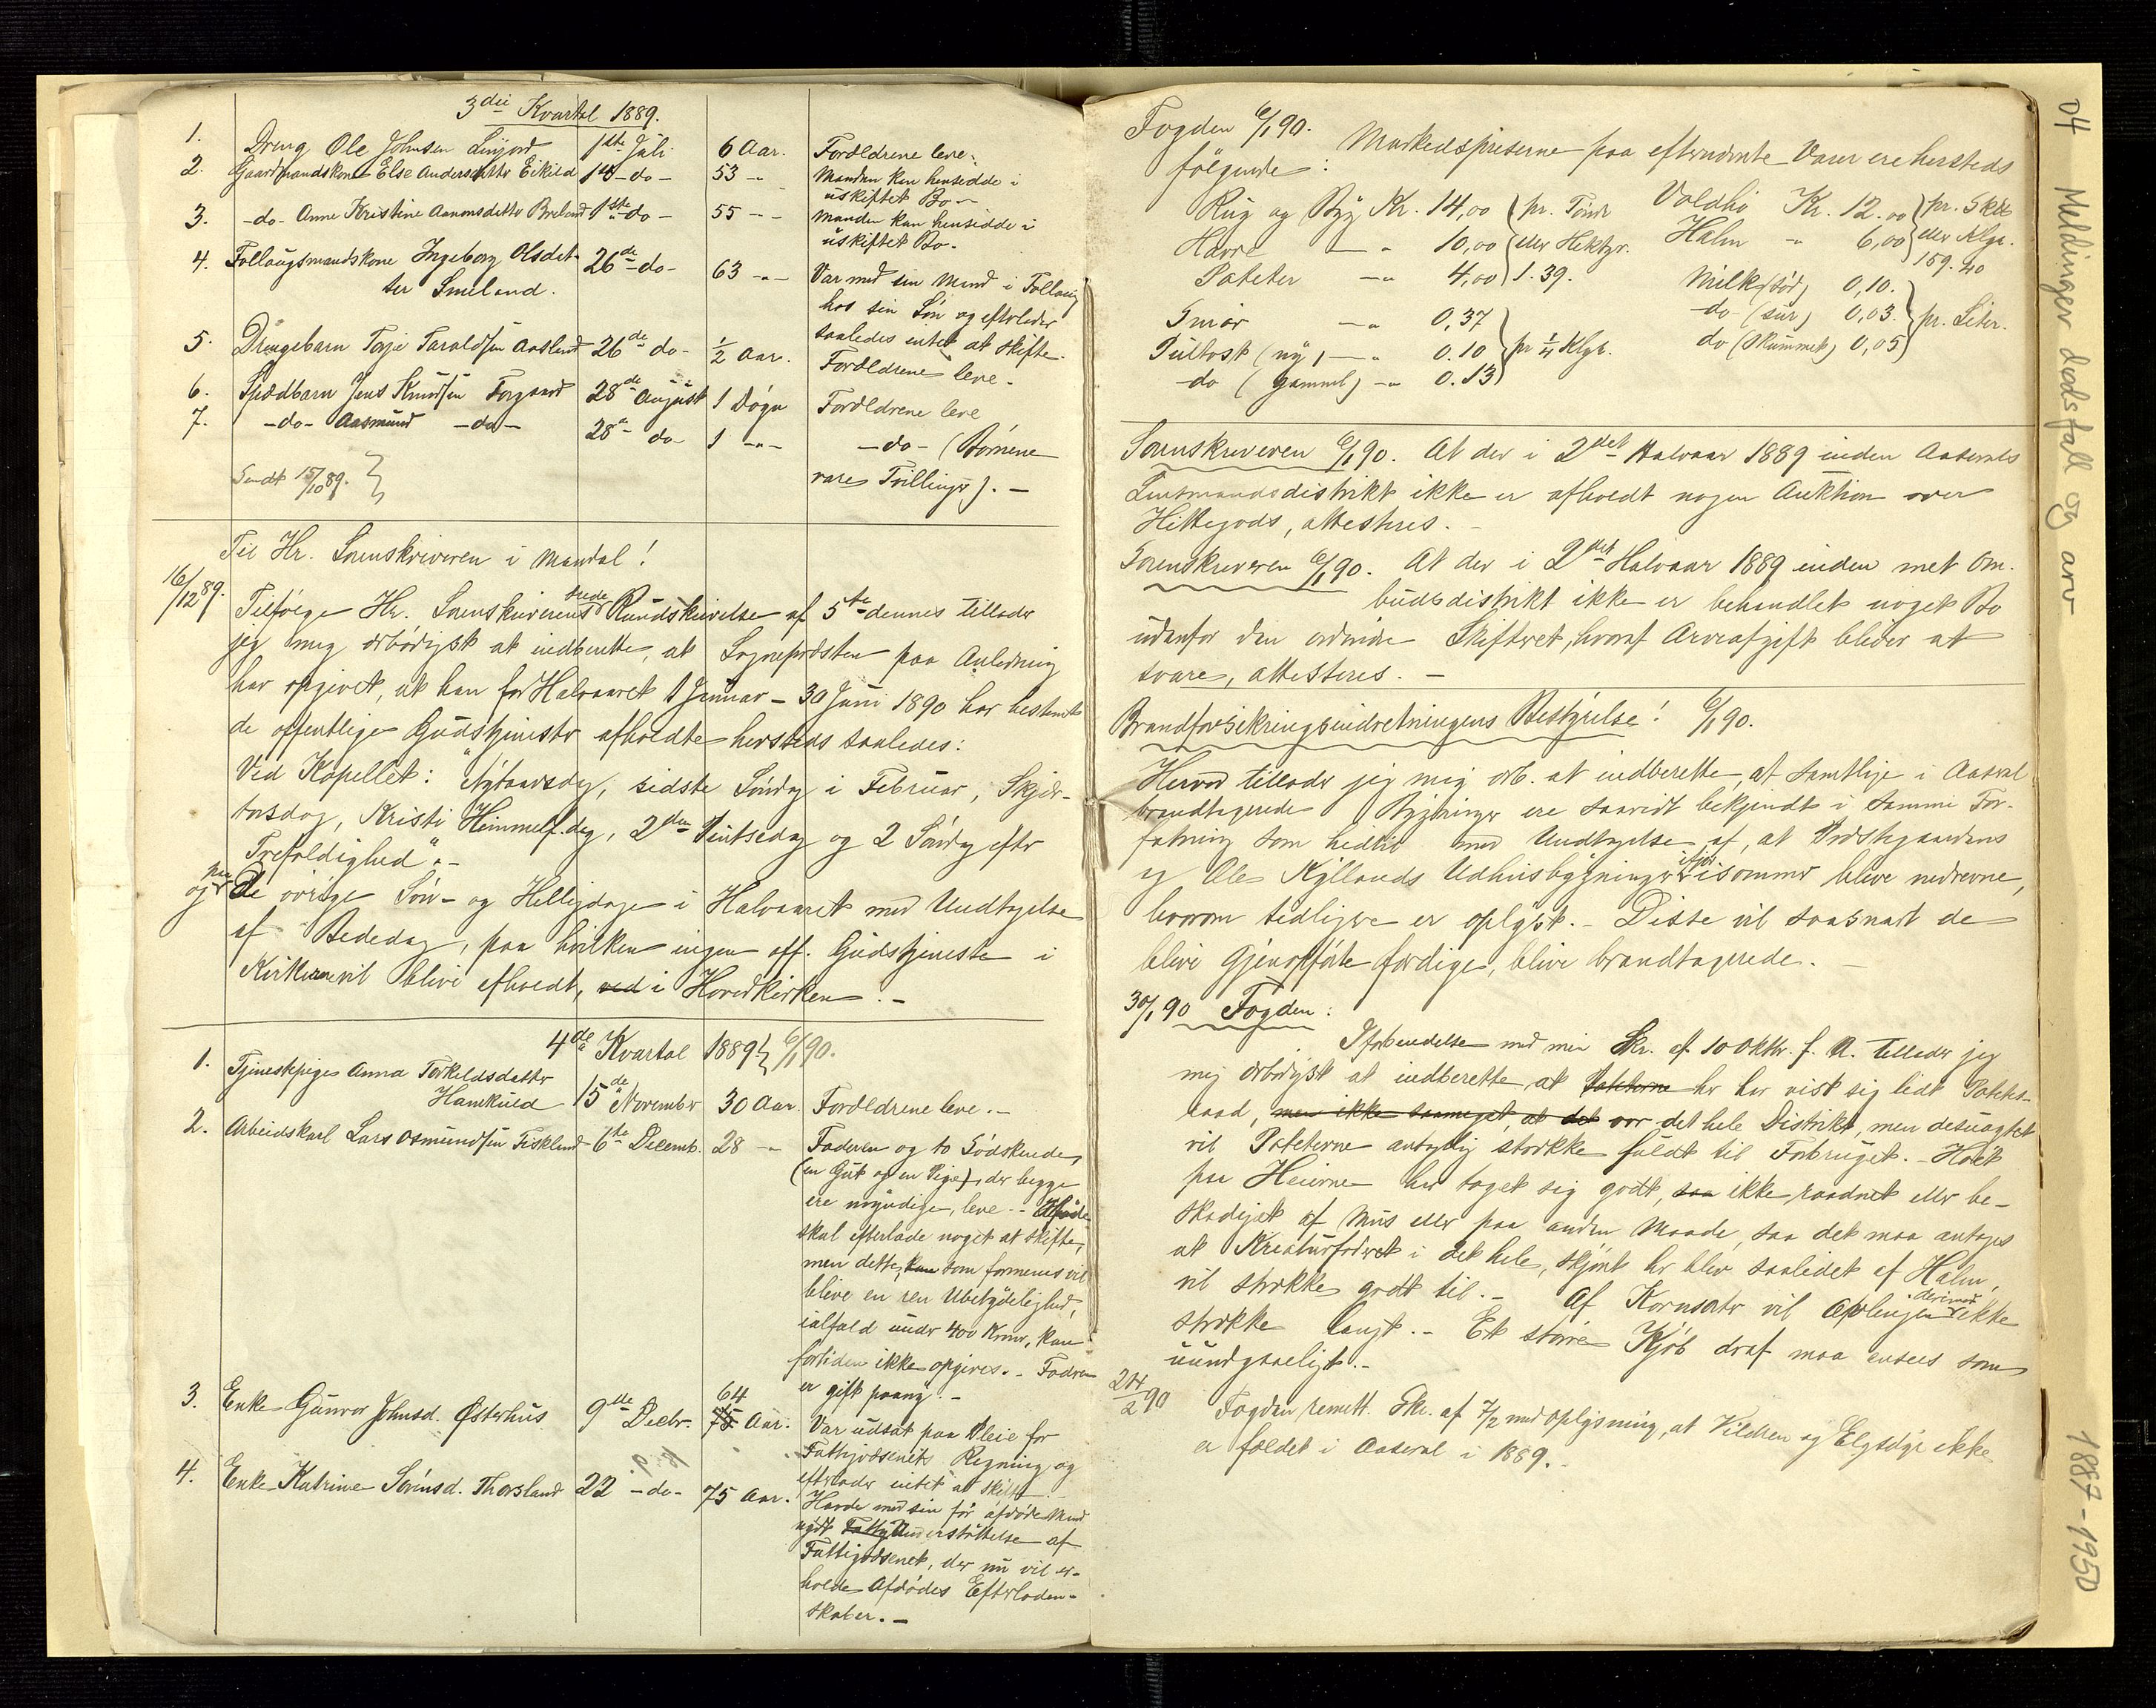 3die Kvartal 1889.
1. Dreng Ole Johnsen Linjord 1ste Juli 6 Aar. Forældrene leve.
2. Gaardmandskone Else Andersdatter Eikild 14 -do- 53 -"- Manden kan hensidde i
uskiftet Bo -
3. -do- Anne Kristine Aanonsdatter Breland 1ste do- 55 -- Manden kan hensidde i
uskiftet Bo.
4. Follaugsmandskone Ingeborg Olsdat-
ter Smeland. 26de -do- 63 -"- Var med sin Mand i Follaug
hos sin Søn og efterlader
saaledes intet at skifte.
5. Drengebarn Terje Taraldsen Aasland 26de do- ½ Aar. Forældrene leve.
6. Spædbarn Jens Knudsen Forgaard 28de August 1 Døgn Forældrene leve
7. -do- Aasmund -do- 28de do- 1 -"- -do- (Børnene
vare Tvillinger). -
Sendt 15/10 89.
Til Hr. Sorenskriveren i Mandal!
16/12 89. Tilfølge Hr. Sorenskriverens Rundskrivelse af 5te dennes tillader
jeg mig ærbødigst at indberette, at Sognepræsten paa Anledning
har opgivet, at han for Halvaaret 1 Januar - 30 Juni 1890 har bestemt
de offentlige Gudstjenester afholdte hersteds saaledes:
Ved Kapellet: "Nytaarsdag, sidste Søndag i Februar, Skjær-
torsdag, Kristi Himmelf.dag, 2den Pintsedag og 2 Søndag efter
Trefoldighed". -
og paa De øvrige Søn- og Helligdage i Halvaaret med Undtagelse
af Bededag, paa hvilken ingen off. Gudstjeneste i
Kirkerne vil blive afholdt, ved i Hovedkirken. -
4de Kvartal 1889 6/1 90.
1. Tjenestepige Anna Torkildsdatter
Hamkuld 15de November 30 Aar. Forældrene leve. -
2. Arbeidskarl Lars Osmundsen Fiskland 6te Decemb. 28 - Faderen og to Sødskende,
(en Gut og en Pige), der begge
ere umyndige, leve. - Afdøde
skal efterlade noget at skifte,
men dette, kan som formenes vil
blive en ren Ubetydelighed,
ialfald under 400 Kroner, kan
fortiden ikke opgives. - Faderen
er gift paany. -
3. Enke Gunvor Johnsd. Østerhus 9de Decbr. 64 75 Aar. Var udsat paa Pleie for
Fattigvæsenets Regning og
efterlader intet at skifte.
4. Enke Katrine Sørensd. Thorsland 22 -do- 75 Aar. Havde med sin før afdøde Mand
nydt Fattig Understøttelse af
Fattigvæsenet, der nu vil er-
holde Afdødes Efterladen-
skaber. -
Fogden 6/1 90. Markedspriserne paa efternævnte Varer ere hersteds
følgende:
Rug og Byg Kr. 14,00 pr. Tønde Voldhø Kr. 12.00 pr. Skb
Havre - " 10,00 eller Hektgr. Halm - " 6,00 eller Klgr.
Poteter - " 4,00 1.39. 159.40
Smør - " 0,37 Melk (sød) 0,10.
Pultost (ny) - " 0.10 pr ¼ Klgr. do (sur) 0,03. pr. Liter.
-do (gammel) - " 0.13 do (skummet) 0,05
Sorenskriveren 6/1 90. At der i 2det Halvaar 1889 inden Aaserals
Lensmandsdistrikt ikke er afholdt nogen Auktion over
Hittegods, attesteres. -
Sorenskriveren 6/1 90. At der i 2det Halvaar 1889 inden met Om-
budsdistrikt ikke er behandlet noget Bo
udenfor den ordinære Skifteret, hvoraf Arveafgift bliver at
svare, attesteres. -
Brandforsikringsindretningens Bestyrelse! 6/1 90.
Herved tillader jeg mig ærb. at indberette, at samtlige i Aaseral
brandtagerede Bygninger ere saavidt bekjendt i samme For-
fatning som hidtil med Undtagelse af, at Præstegaardens
og Ole Kyllands Udhusbygninger ifjor isommer bleve nedrevne,
hvorom tidligere er oplyst. - Disse vil saasnart de
blive gjenopførte færdige, blive brandtagerede. -
30/1 90 Fogden:
I forbindelse med min Skr. af 10 Oktbr. f. A. tillader jeg
mig ærbødigst at indberette, at Poteterne her har vist sig lidt Potet-
raad, men ikke saameget, at det over det hele Distrikt, men desuagtet
vil Poteterne antagelig strække fuldt til Forbruget. - Høiet
paa Heierne har taget sig godt, saa ikke raadnet eller be-
skadiget af Mus eller paa anden Maade, saa det maa antages
at Kreaturfoderet i det hele, skjønt her blev saalidet af Halm,
vil strække godt til. - Af Kornsorter vil Avlingen derimod ikke
strække langt. - Et større Kjøb deraf maa ansees som
uundgaaeligt. -
24/2 90 Fogden remett. Skr. af 7/2 med Oplysning, at Vildren og Elgsdyr ikke
er fældet i Aaseral i 1889. -
04 Meldinger dødsfall og arv 1887-1950